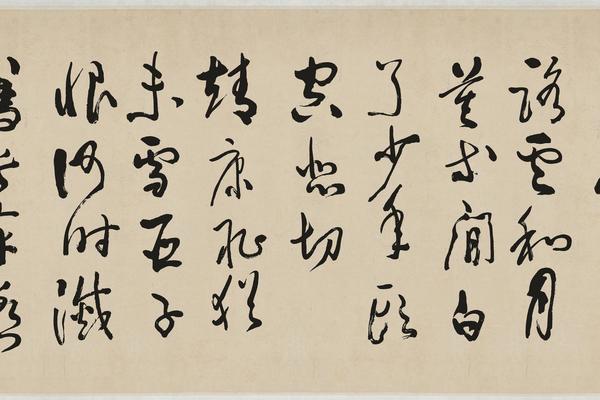 路雲和月
莫等閒白
了少年頭
空悲切
靖康耻猶
未雪臣子
恨何時滅